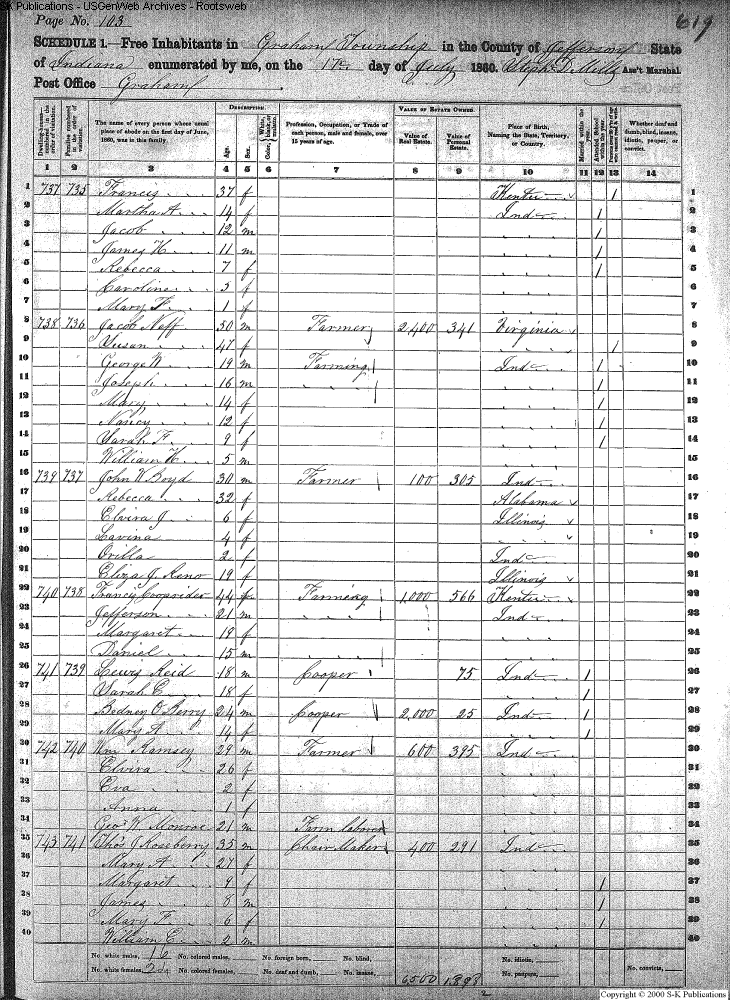 S-K Publications - USGenWeb Archives - Rootsweb
Page No. 103
619
SCHEDULE 1.—Free Inhabitants in Graham Township in the County of Jefferson State
of Indiana enumerated by me, on the 17th day of July 1860. Steph. D. Mills Ass't Marshal.
Post Office Graham
Dwelling-houses—numbered in the order of visitation. Families numbered in the order of visitation. The name of every person whose usual place of abode on the first day of June, 1860, was in this family. DESCRIPTION. Age. Sex. Color, White, black, or mulatto. Profession, Occupation, or Trade of each person, male and female, over 15 years of age. VALUE OF ESTATE OWNED. Value of Real Estate. Value of Personal Estate. Place of Birth, Naming the State, Territory, or Country. Married within the year. Attended School within the year. Whether deaf and dumb, blind, insane, idiotic, pauper, or convict.
1 2 3 4 5 6 7 8 9 10 11 12 13 14
1 737 735 Francis 37 f Kentu / 1
2 Martha A. 14 f Ind / 2
3 Jacob 12 m " / 3
4 James H. 11 m " / 4
5 Rebecca 7 f " / 5
6 Caroline 5 f " 6
7 Mary F. 1 f " 7
8 738 736 Jacob Neff 50 m Farmer 2,400 341 Virginia 8
9 Susan 47 f " / 9
10 George W. 19 m Farming Ind / 10
11 Joseph 16 m " " / 11
12 Mary 14 f " / 12
13 Nancy 12 f " / 13
14 Sarah F. 9 f " / 14
15 William H. 5 m " 15
16 739 737 John W Boyd 30 m Farmer 100 305 Ind 16
17 Rebecca 32 f Alabama 17
18 Elvira J 6 f Illinois 18
19 Lavina 4 f " 19
20 Orilla 2 f Ind 20
21 Eliza J. Reno 19 f Illinois 21
22 740 738 Francis 44 Farming 1,000 566 Kentu 22
23 Jefferson 21 m " Ind 23
24 Margaret 19 f " 24
25 Daniel 15 m " " 25
26 741 739 Lewis Reid 18 m Cooper 75 Ind / 26
27 Sarah E. 18 f " / 27
28 Bedney O Berry 24 m Cooper 2,000 25 Ind / 28
29 Mary A 14 f " / 29
30 742 740 Wm Ramsey 29 m Farmer 600 395 Ind 30
31 Elvira 26 f " 31
32 Eva 2 f " 32
33 Anna 1 f " 33
34 Geo W. Monroe 21 m Farm laborer " 34
35 743 741 Thos J Roseberry 35 m Chair Maker 400 291 Ind 35
36 Mary A 27 f " 36
37 Margaret 9 f " / 37
38 James 8 m " / 38
39 Mary F. 6 f " / 39
40 William E. 2 m " 40
No. white males, 16 No. colored males, No. foreign born, No. blind, No. idiotic,
No. white females, No. colored females, No. deaf and dumb, No. insane, 6500 No. paupers, No. convicts,
Copyright © 2000 S-K Publications